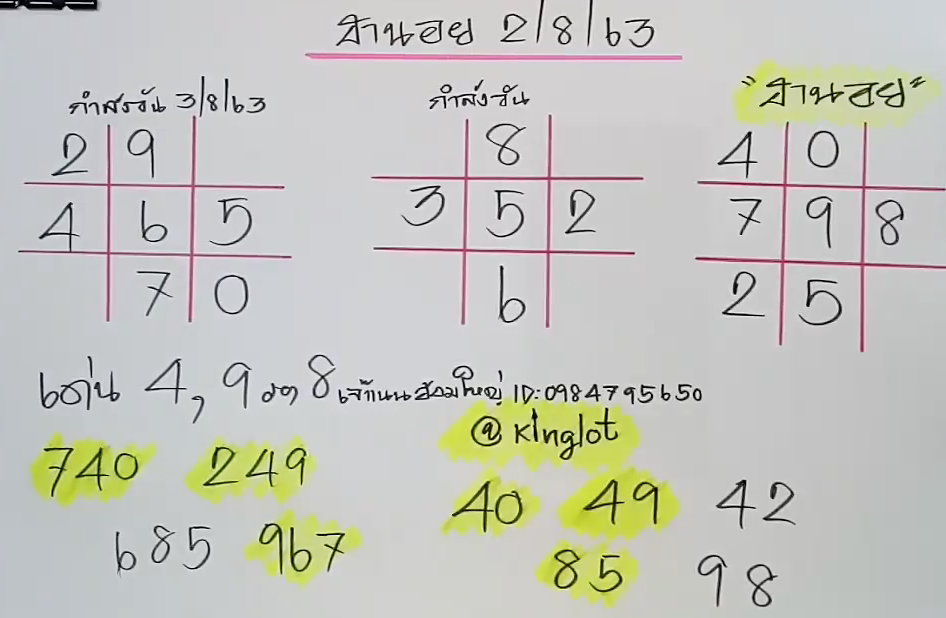 ฮานอย 2/8/63
กำลังวัน 3/8/63
2 9
4 6 5
7 0
กำลังวัน
8
3 5 2
6
"ฮานอย"
4 0
7 9 8
2 5
เด่น 4, 9 รอง 8 ID: 0984795650
@Kinglot
740 249
685 967
40 49 42
85 98